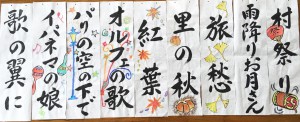 村祭り
雨降りお月さん
旅愁
里の秋
紅葉
オルフェの歌
パリの空の下で
イパネマの娘
歌の翼に